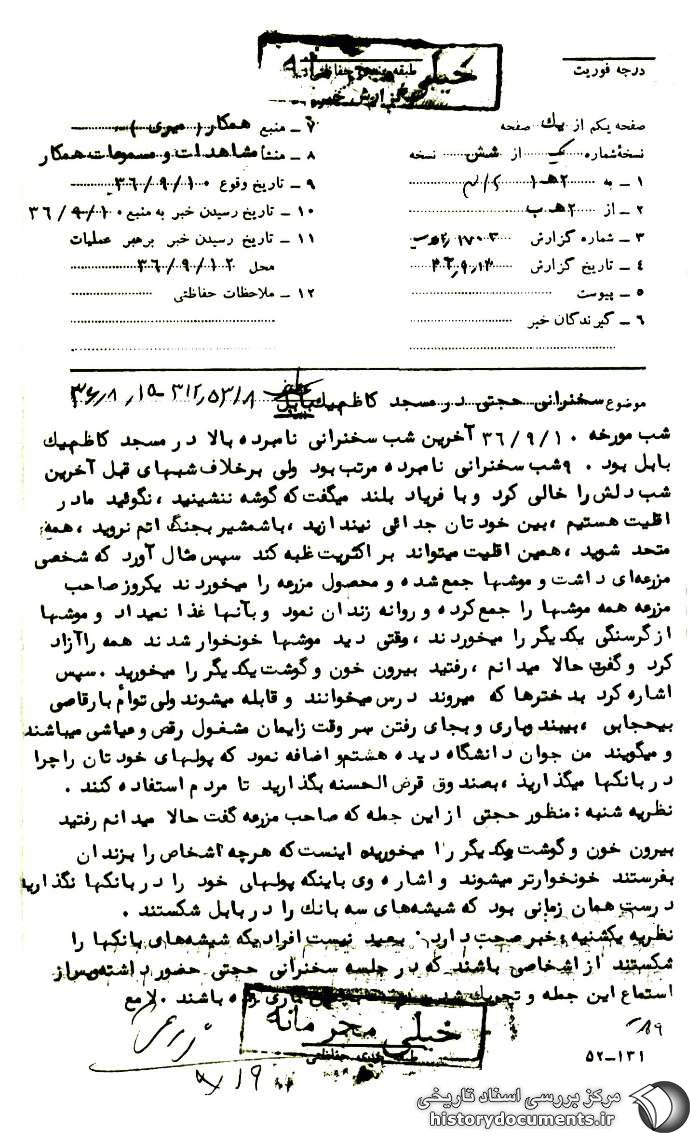 خیلی محرمانه
طبقه‌بندی حفاظتی
گزارش خبر
درجه فوریت
صفحه یکم از یك صفحه
نسخه شماره یک از شش نسخه
۱ ـ به ۲هـ ۱
۲ ـ از ۲هـ ب
۳ ـ شماره گزارش
۴ ـ تاریخ گزارش
۵ ـ پیوست
۶ ـ گیرندگان خبر
۷ ـ منبع همکار (
۸ ـ منشأ مشاهدات و مسموعات همکار
۹ ـ تاریخ وقوع ۳۶/۹/۱۰
۱۰ ـ تاریخ رسیدن خبر به منبع ۳۶/۹/۱۰
۱۱ ـ تاریخ رسیدن خبر برهبر عملیات
محل ۳۶/۹/۱۲
۱۲ ـ ملاحظات حفاظتی
موضوع سخنرانی حجتی در مسجد کاظم‌بیك بابل
شب مورخه ۳۶/۹/۱۰ آخرین شب سخنرانی نامبرده بالا در مسجد کاظم‌بیك
بابل بود . ۹شب سخنرانی نامبرده مرتب بود ولی برخلاف شبهای قبل آخرین
شب دلش را خالی کرد و با فریاد بلند میگفت که گوشه ننشینید ، نگوئید ما در
اقلیت هستیم ، بین خودتان جدائی نیندازید ، باشمشیر بجنگ اتم نروید ، همه
متحد شوید ، همین اقلیت میتواند بر اکثریت غلبه کند سپس مثال آورد که شخصی
مزرعه‌ای داشت و موشها جمع شده و محصول مزرعه را میخوردند یکروز صاحب
مزرعه همه موشها را جمع کرده و روانه زندان نمود و بآنها غذا نمیداد و موشها
از گرسنگی یکدیگر را میخوردند ، وقتی دید موشها خونخوار شدند همه را آزاد
کرد و گفت حالا میدانم ، رفتید بیرون خون و گوشت یکدیگر را میخورید . سپس
اشاره کرد بدخترها که میروند درس میخوانند و قابله میشوند ولی توأم با رقاصی
بیحجابی ، بیبندوباری و بجای رفتن سر وقت زایمان مشغول رقص و عیاشی میباشند
و میگویند من جوان دانشگاه دیده هستم و اضافه نمود که پولهای خودتان را چرا
در بانکها میگذارید ، بصندوق قرض الحسنه بگذارید تا مردم استفاده کنند .
نظریه شنبه : منظور حجتی از این جمله که صاحب مزرعه گفت حالا میدانم رفتید
بیرون خون و گوشت یکدیگر را میخورید اینست که هرچه اشخاص را بزندان
بفرستند خونخوارتر میشوند و اشاره وی باینکه پولهای خود را در بانکها نگذارید
درست همان زمانی بود که شیشه‌های سه بانك را در بابل شکستند .
نظریه یکشنبه ، خبر صحت دارد . بعید نیست افرادیکه شیشه‌های بانکها را
شکستند از اشخاصی باشند که در جلسه سخنرانی حجتی حضور داشته و پس از
استماع این جمله و تحریك شدن باشند . لامع
خیلی محرمانه
۱۹
۵۲-۱۳۱
مرکز بررسی اسناد تاریخی
historydocuments.ir